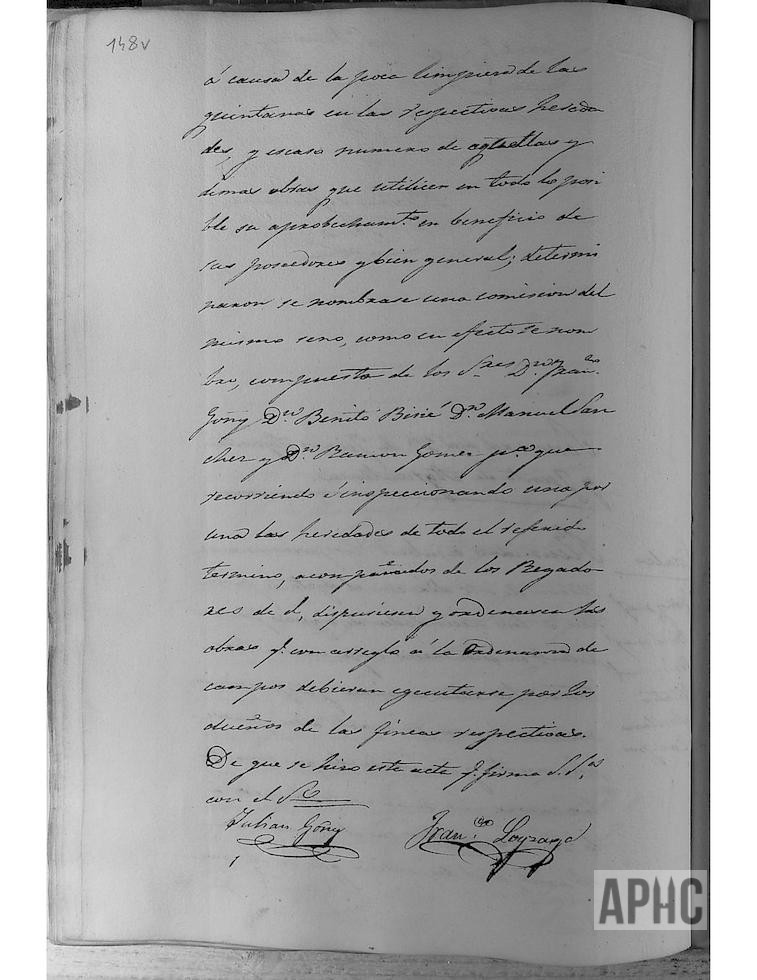 148v
á causa de la poca limpiera de las
quintanas en las respectivas hereda
des, y escaso numero de aquellas y
demas obras que utilicen en todo lo posi
ble su aprobechamto. en beneficio de
sus poseedores y bien general; determi
naron se nombrase una comision del
mismo seno, como en efecto se nom
bro, compuesta de los Sres. Dn. Franco.
Goñy Dn. Benito Dn. Manuel San
chez y Dn. Ramon Gomez pa. que
recorriendo é inspeccionando una por
una las heredades de todo el referido
termino, acompañados de los Regado
res de el, dispusiesen y ordenasen las
obras q. con arreglo á la Ordenanza de
campos debieran egecutarse por los
dueños de las fincas respectivas.
De que se hizo este acte q. firma S.S.as
con el
Julian Goñy Franco.
APHC